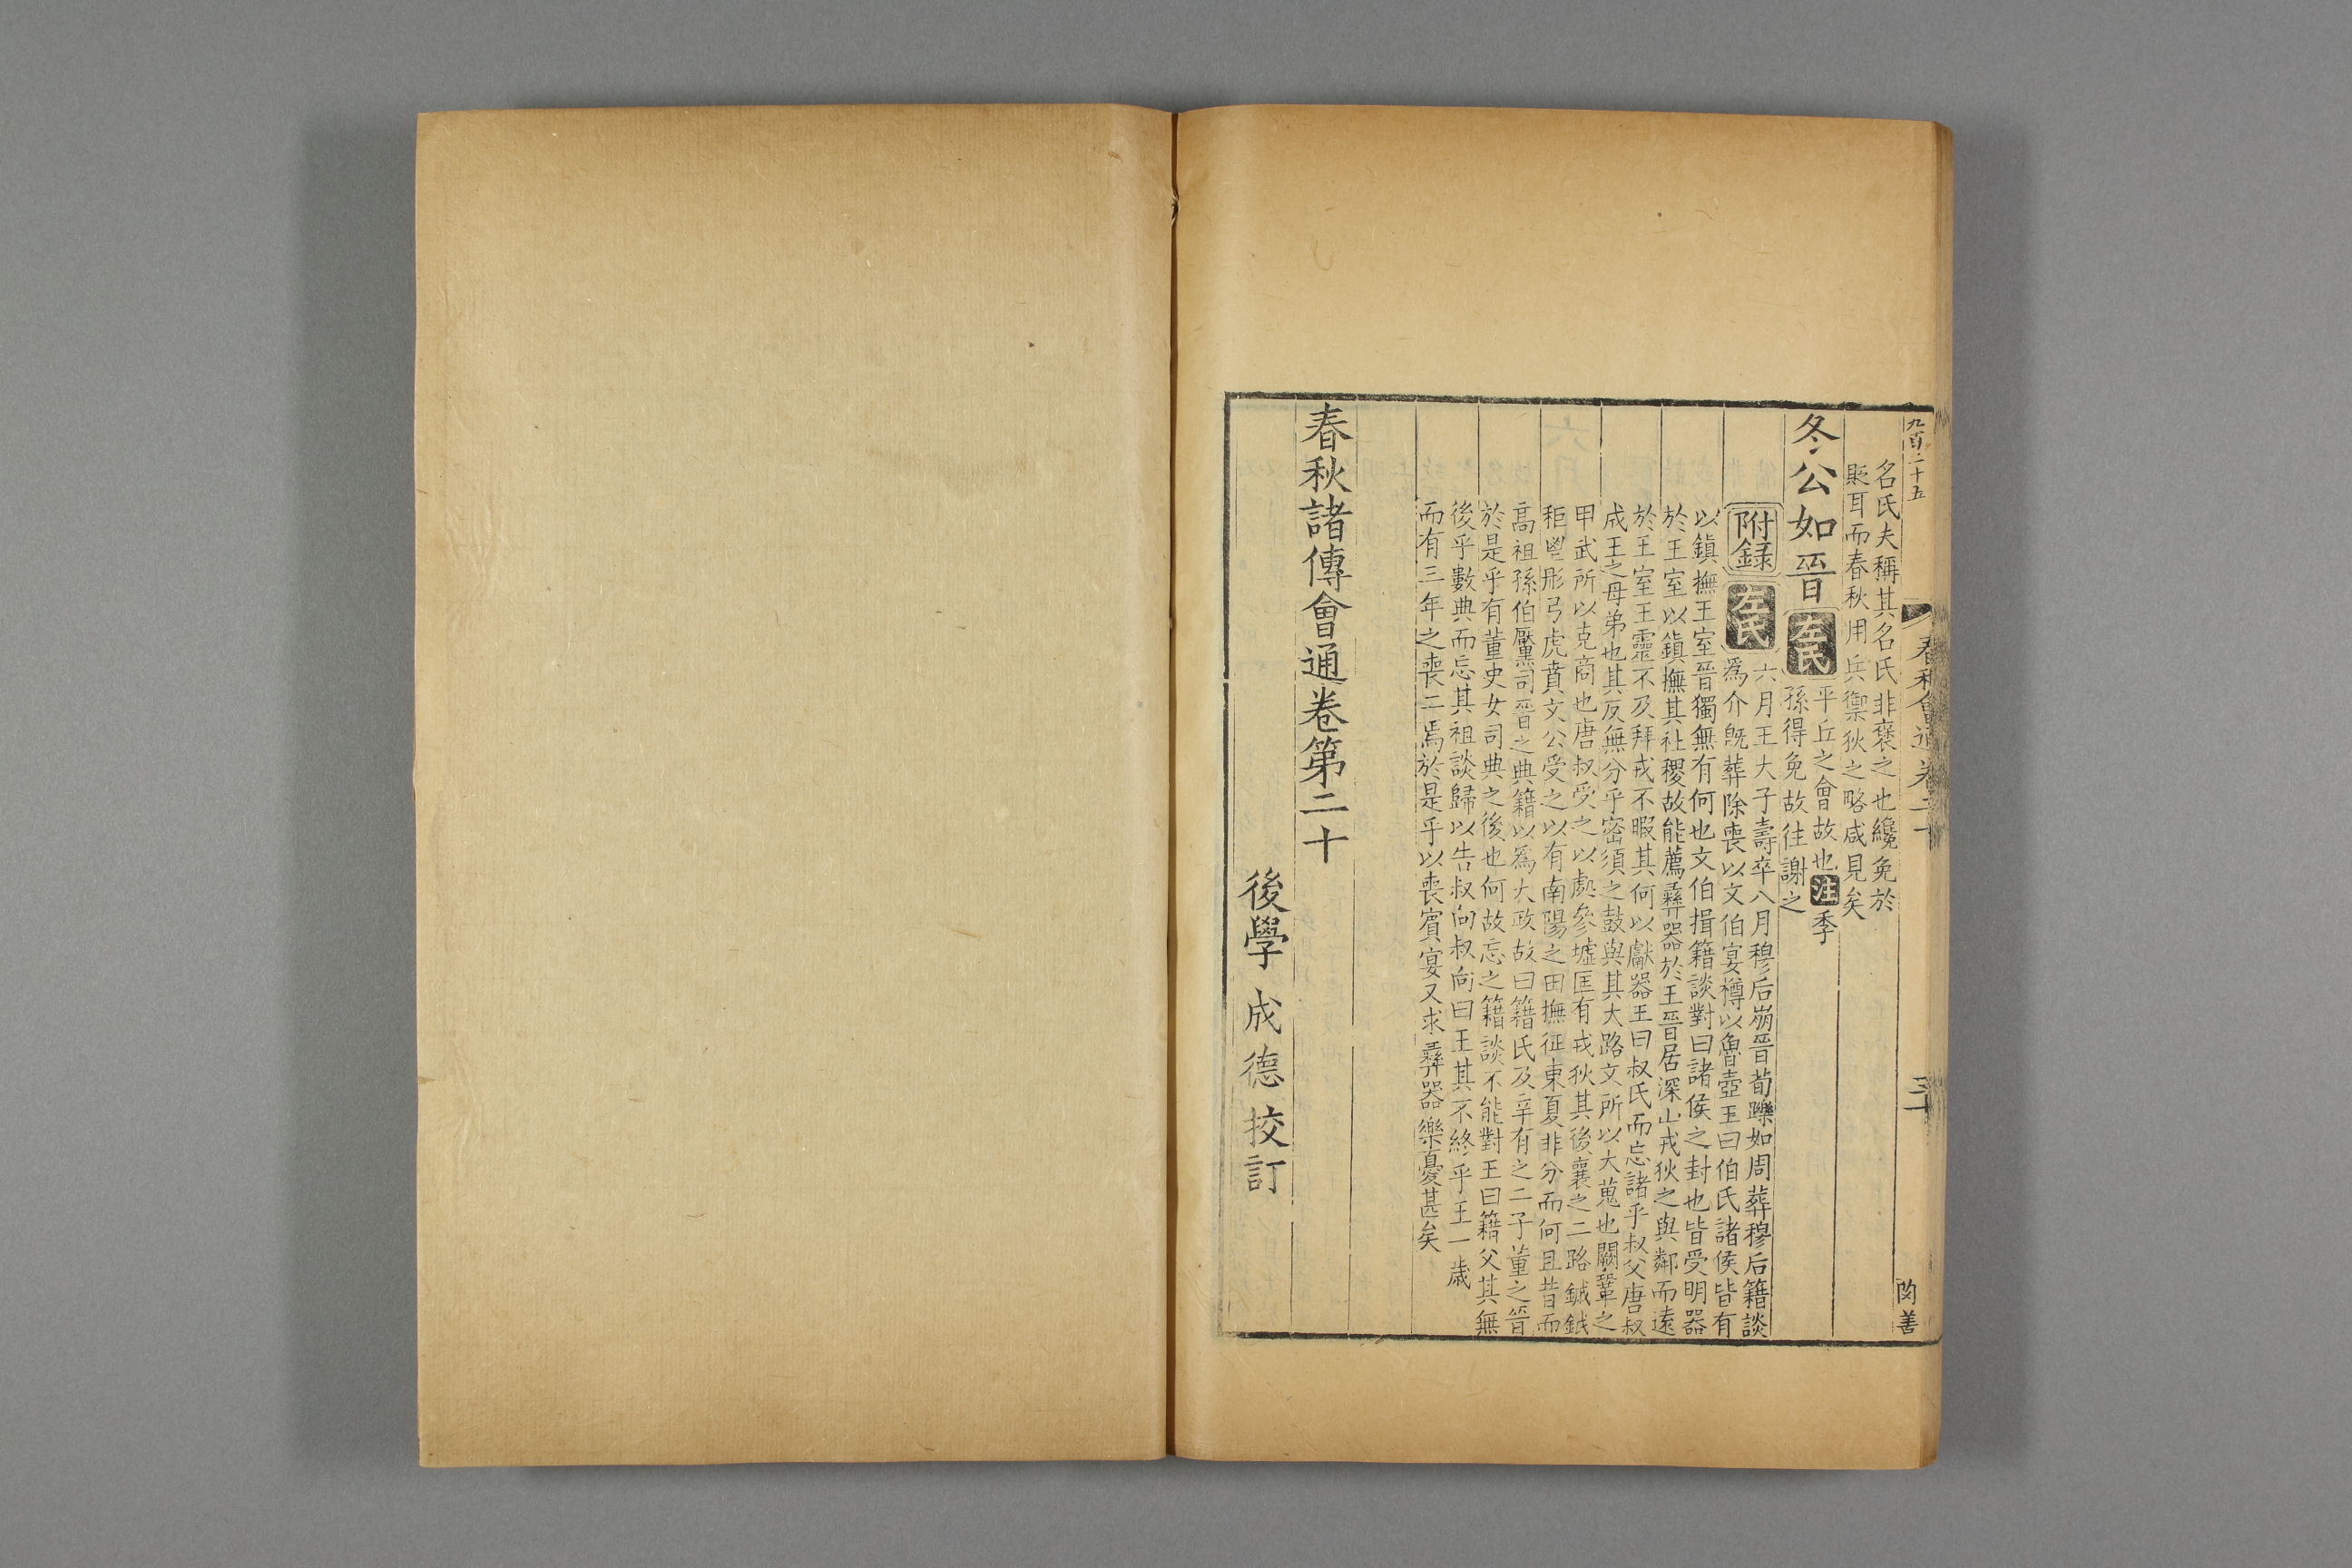 九百二十五
春秋會通卷二十
三十
善
名氏夫稱其名氏非褒之也纔免於
貶耳而春秋用兵禦狄之略咸見矣
冬公如晉 左氏 平丘之會故也 注 季
孫得免故往謝之
附錄 左氏 六月王大子壽卒八月穆后崩晉荀躒如周葬穆后籍談
爲介既葬除喪以文伯宴樽以魯壺王曰伯氏諸侯皆有
以鎮撫王室晉獨無有何也文伯揖籍談對曰諸侯之封也皆受明器
於王室以鎮撫其社稷故能薦彝器於王晉居深山戎狄之與鄰而遠
於王室王靈不及拜戎不暇其何以獻器王曰叔氏而忘諸乎叔父唐叔
成王之母弟也其反無分乎密須之鼓與其大路文所以大蒐也闕鞏之
甲武所以克商也唐叔受之以處參墟匡有戎狄其後襄之二路鏚鉞
秬鬯彤弓虎賁文公受之以有南陽之田撫征東夏非分而何且昔而
高祖孫伯黶司晉之典籍以爲大政故曰籍氏及辛有之二子董之晉
於是乎有董史女司典之後也何故忘之籍談不能對王曰籍父其無
後乎數典而忘其祖談歸以告叔向叔向曰王其不終乎王一歲
而有三年之喪二焉於是乎以喪賓宴又求彝器樂憂甚矣
春秋諸傳會通卷第二十
後學 成德 挍訂